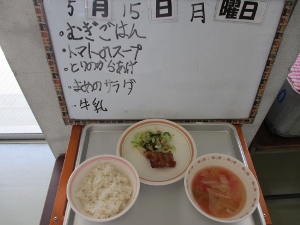 5月15日月曜日
・むぎごはん
・トマトのスープ
・とりのからあげ
・まめのサラダ
・牛乳